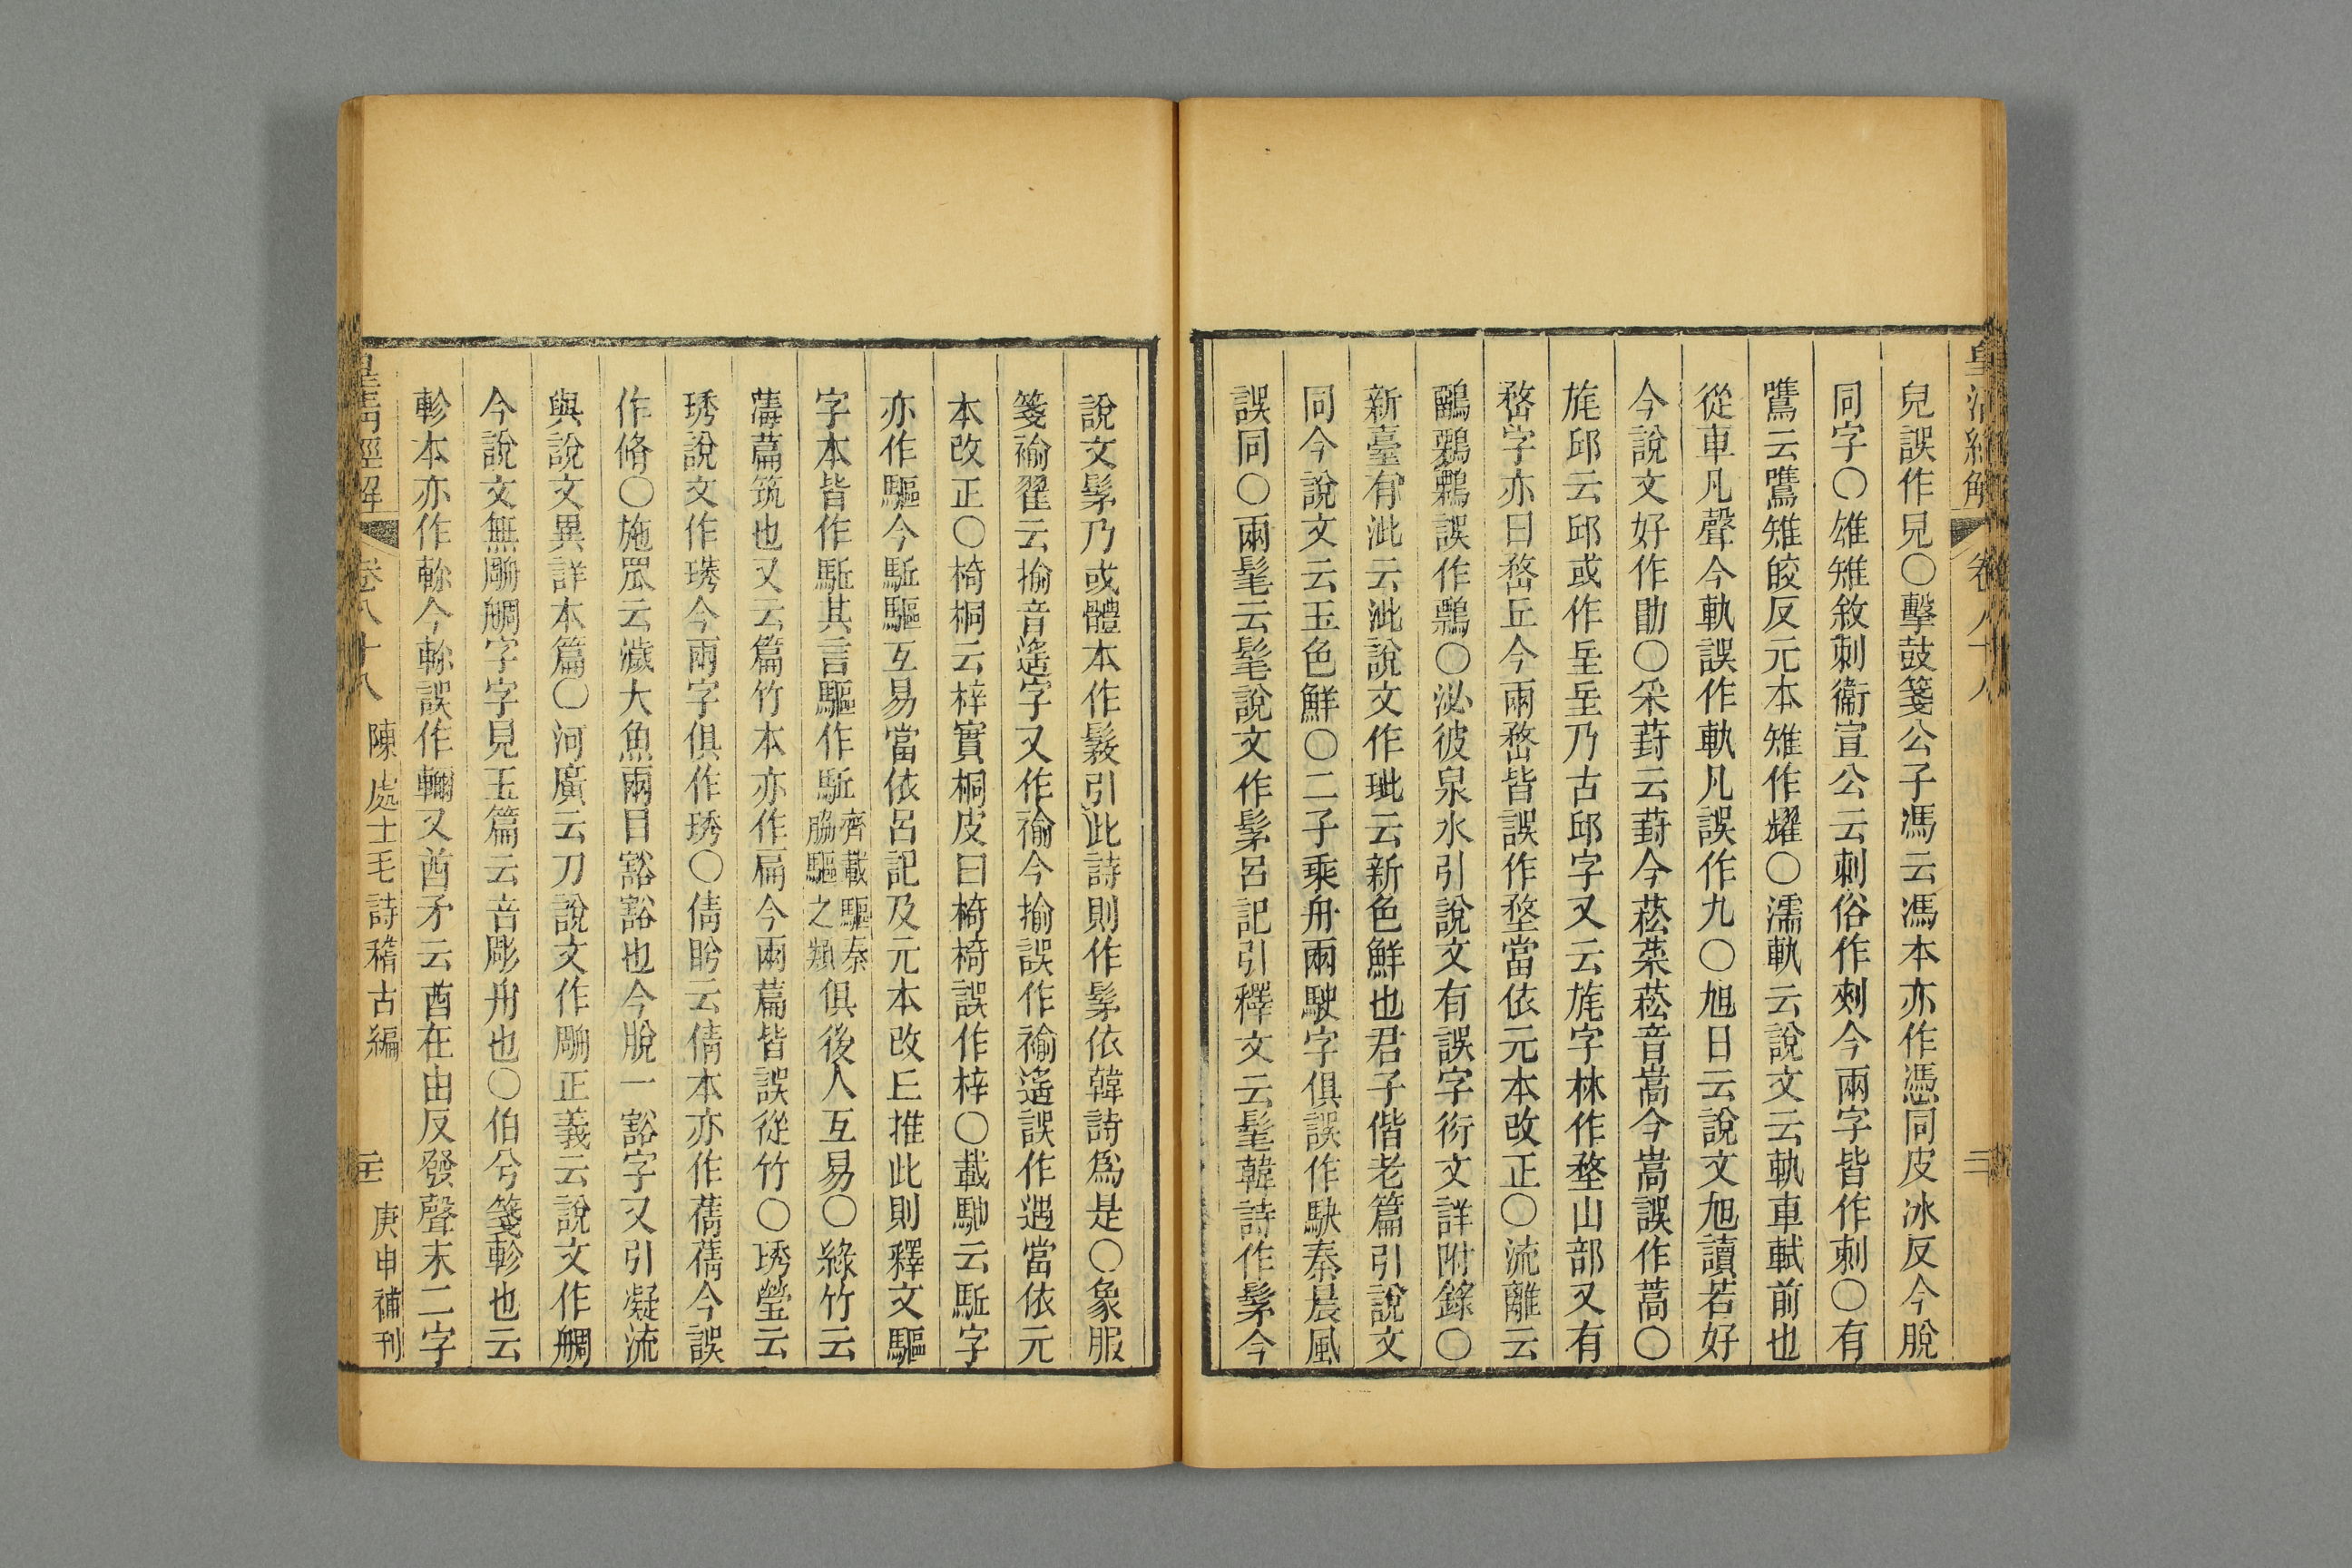 皇清經解
卷八十八
兒誤作兄○擊鼓箋公子馮云馮本亦作憑同皮冰反今脫
同字○雄雉敘刺衞宣公云刺俗作刾今兩字皆作刺○有
鷕云鷕雉皎反元本雉作耀○濡軌云說文云軌車軾前也
從車凡聲今軌誤作軌凡誤作九○旭日云說文旭讀若好
今說文好作勖○采葑云葑今菘菜菘音嵩今嵩誤作蒿○
旄邱云邱或作㘳㘳乃古邱字又云旄字林作堥山部又有
嵍字亦曰嵍丘今兩嵍皆誤作堥當依元本改正○流離云
鸝鶚鷅誤作鶚○泌彼泉水引說文有誤字衍文詳附錄○
新臺有泚云泚說文作玼云新色鮮也君子偕老篇引說文
同今說文云玉色鮮○二子乘舟兩駛字俱誤作駃秦晨風
誤同○兩髦云髦說文作髳呂記引釋文云髦韓詩作髳今
說文髳乃或體本作鬏引此詩則作髳依韓詩爲是○象服
箋褕翟云揄音遙字又作褕今揄誤作褕遙誤作遇當依元
本改正○椅桐云梓實桐皮曰椅椅誤作梓○載馳云駈字
亦作驅今駈驅互易當依呂記及元本改正推此則釋文驅
字本皆作駈其言驅作駈齊載驅秦脇驅之類俱後人互易○綠竹云
薄萹筑也又云篇竹本亦作扁今兩萹皆誤從竹○琇瑩云
琇說文作璓今兩字俱作琇○倩盻云倩本亦作蒨蒨今誤
作脩○施罛云濊大魚兩目豁豁也今脫一豁字又引凝流
與說文異詳本篇○河廣云刀說文作鵰正義云說文作䑩
今說文無鵰䑩字字見玉篇云音彫舟也○伯兮箋軫也云
軫本亦作軫今軫誤作輛又酋矛云酋在由反發聲末二字
皇清經解
卷八十八
陳處士毛詩稽古編
庚申補刊